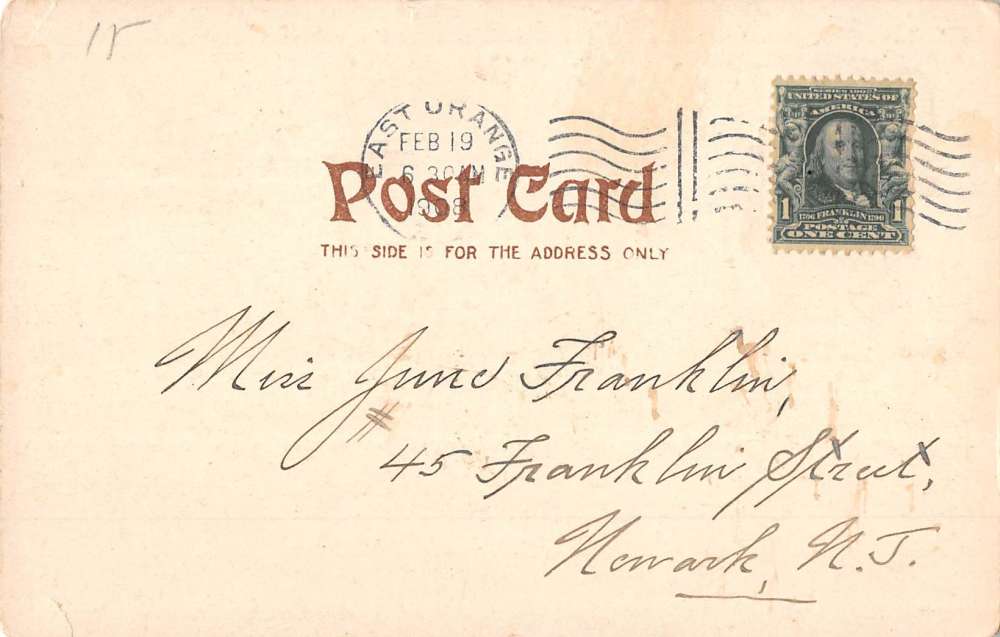 15
EAST ORANGE
FEB 19
6 30AM
1908
SERIES 1902
UNITED STATES OF
AMERICA
1 FRANKLIN 1
1706 1790
POSTAGE
ONE CENT
Post Card
THIS SIDE IS FOR THE ADDRESS ONLY
Miss June Franklin,
# 45 Franklin Street,
Newark, N.J.